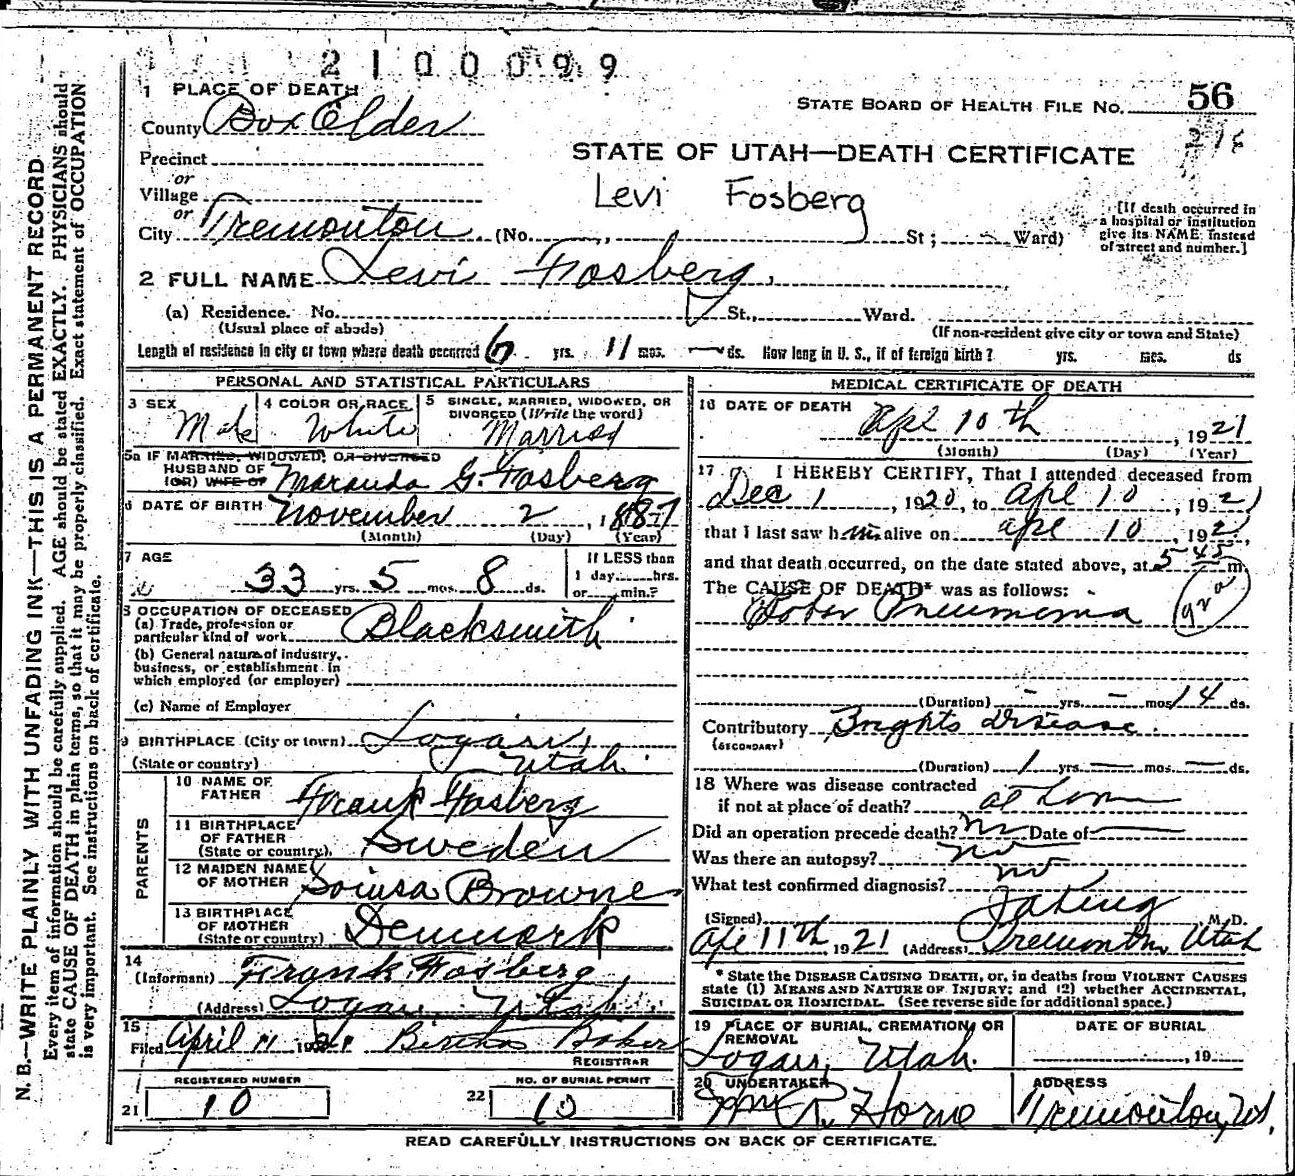 2100099
1 PLACE OF DEATH
STATE BOARD OF HEALTH FILE NO. 56
County Box Elder
Precinct
STATE OF UTAH—DEATH CERTIFICATE
or
Village
Levi Fosberg
or
City Tremonton (No. , St ; Ward)
[If death occurred in
a hospital or institution
give its NAME instead
of street and number.]
2 FULL NAME Levi Fosberg,
(a) Residence. No. St., Ward.
(Usual place of abode)
(If non-resident give city or town and State)
Length of residence in city or town where death occurred 6 yrs. 11 mos. — ds. How long in U. S., if of foreign birth? yrs. mos. ds
PERSONAL AND STATISTICAL PARTICULARS
3 SEX
Male
4 COLOR OR RACE
White
5 SINGLE, MARRIED, WIDOWED, OR
DIVORCED (Write the word)
Married
5a IF MARRIED, WIDOWED, OR DIVORCED
HUSBAND OF
(OR) WIFE OF Maranda G. Fosberg
6 DATE OF BIRTH November 2, 1887
(Month) (Day) (Year)
7 AGE
33 yrs. 5 mos. 8 ds.
If LESS than
1 day......hrs.
or......min.?
8 OCCUPATION OF DECEASED
(a) Trade, profession or
particular kind of work Blacksmith
(b) General nature of industry,
business, or establishment in
which employed (or employer)
(c) Name of Employer
9 BIRTHPLACE (City or town) Logan,
(State or country) Utah.
PARENTS
10 NAME OF
FATHER Frank Fosberg
11 BIRTHPLACE
OF FATHER
(State or country) Sweden
12 MAIDEN NAME
OF MOTHER Louisa Browne
13 BIRTHPLACE
OF MOTHER
(State or country) Denmark
14
(Informant) Frank Fosberg
(Address) Logan, Utah.
15
Filed April 11 1921 Bertha Baker
REGISTRAR
REGISTERED NUMBER
21 10
NO. OF BURIAL PERMIT
22 10
MEDICAL CERTIFICATE OF DEATH
16 DATE OF DEATH Apl 10th, 1921
(Month) (Day) (Year)
17 I HEREBY CERTIFY, That I attended deceased from
Dec 1, 1920, to Apl 10, 1921
that I last saw him alive on Apl 10, 1921,
and that death occurred, on the date stated above, at 5 45 m.
The CAUSE OF DEATH* was as follows:
Lobar Pneumonia
(Duration) — yrs. — mos. 14 ds.
Contributory Brights disease.
(SECONDARY)
(Duration) 1 yrs. — mos. — ds.
18 Where was disease contracted
if not at place of death? at home
Did an operation precede death? no Date of —
Was there an autopsy? no
What test confirmed diagnosis? no
(Signed) M. D.
Apl 11th, 1921 (Address) Tremonton, Utah
* State the DISEASE CAUSING DEATH, or, in deaths from VIOLENT CAUSES
state (1) MEANS AND NATURE OF INJURY; and (2) whether ACCIDENTAL,
SUICIDAL OR HOMICIDAL. (See reverse side for additional space.)
19 PLACE OF BURIAL, CREMATION, OR
REMOVAL
Logan, Utah.
DATE OF BURIAL
, 19
20 UNDERTAKER
Wm R. Horne
ADDRESS
Tremonton, Ut.
READ CAREFULLY INSTRUCTIONS ON BACK OF CERTIFICATE.
N. B.—WRITE PLAINLY WITH UNFADING INK—THIS IS A PERMANENT RECORD
Every item of information should be carefully supplied. AGE should be stated EXACTLY. PHYSICIANS should
state CAUSE OF DEATH in plain terms, so that it may be properly classified. Exact statement of OCCUPATION
is very important. See instructions on back of certificate.